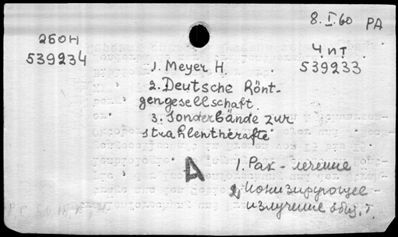 8.I.60 РА
2БОН
539234
Ч ИТ
539233
1. Meyer H.
2. Deutsche Rönt-
gengesellschaft.
3. Sonderbände zur
strahlentherafte
A
1. Рак - лечение
2. Ионизирующее
излучение общ. т.